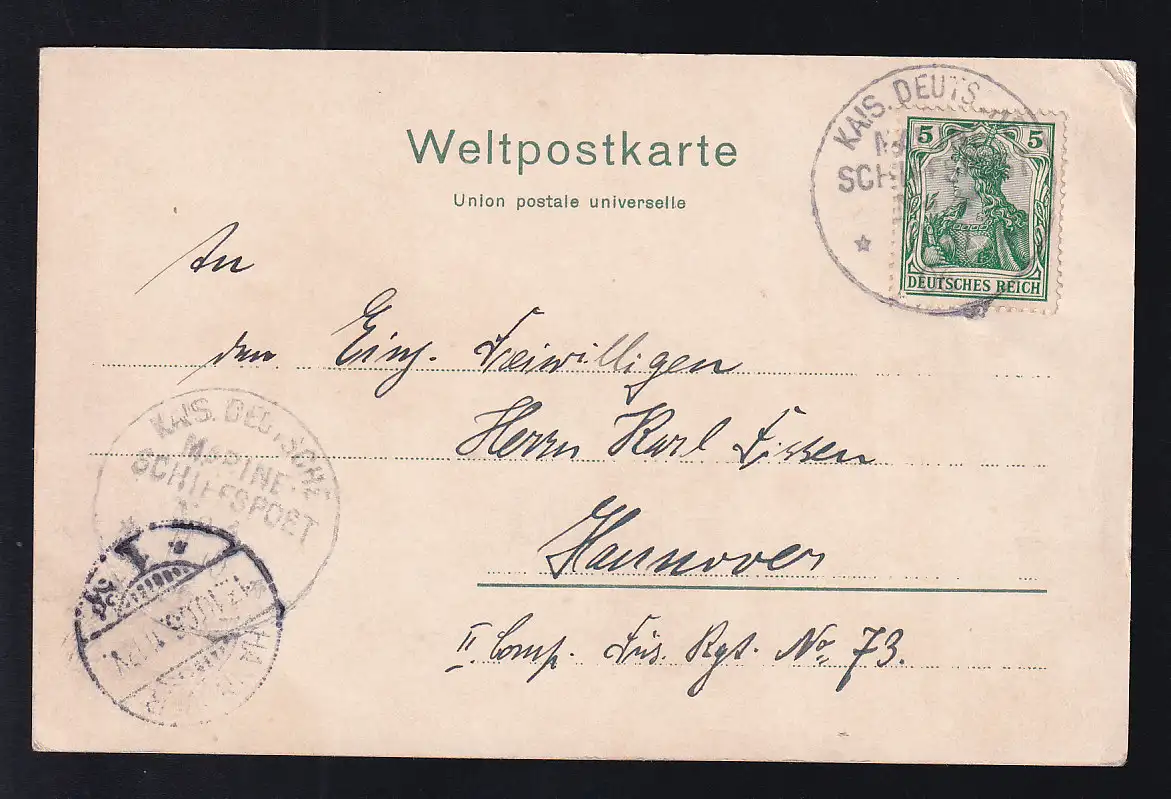 Weltpostkarte
Union postale universelle
KAIS. DEUTS
SCH
5 5
DEUTSCHES REICH
An
den Einj. Freiwilligen
Herrn Karl Fissen
Hannover
II Comp. Füs. Rgt. No 73.
KAIS. DEUTSCHE
MARINE-
SCHIFFSPOST
No
HANNOVER